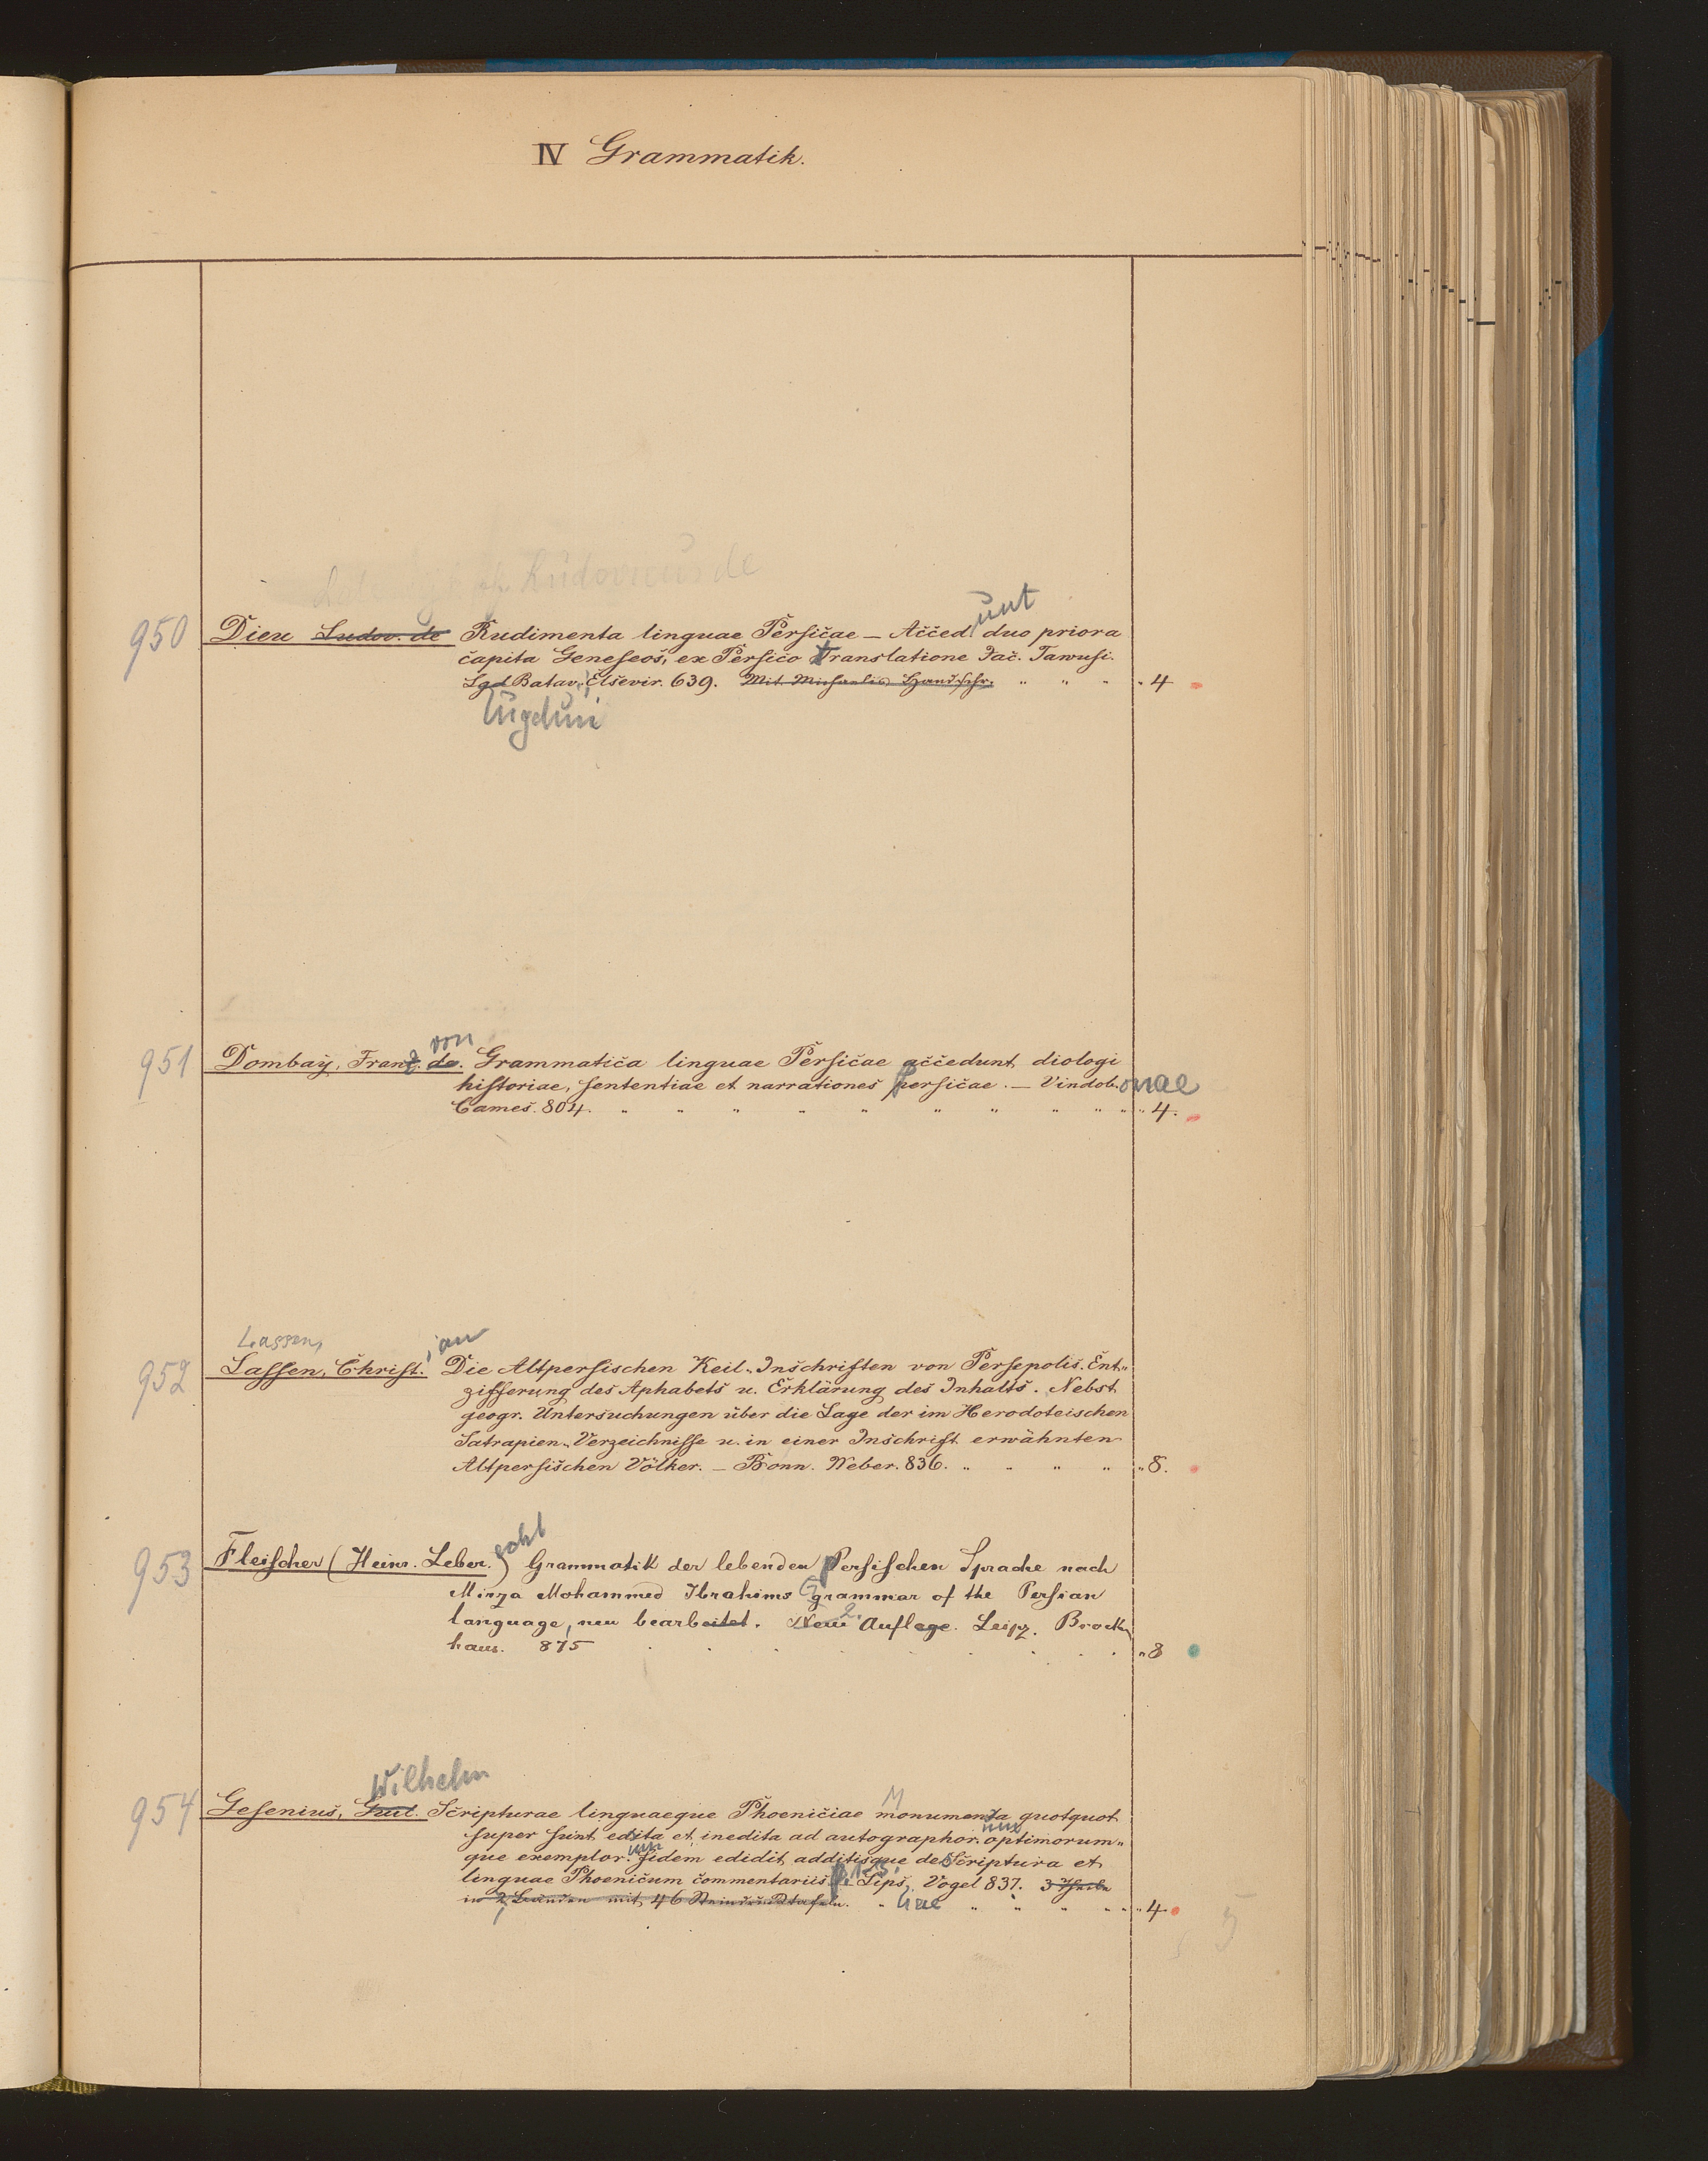 IV Grammatik.
Ludovicus de
unt
950 Dieu Ludov. de Rudimenta linguae Persicae — Acced. duo priora
capita Geneseos, ex Persico translatione Jac. Tawusi.
Lgd Batav. Elsevir. 639. Mit Michaelis Handschr. " " " " 4
Lugduni
von
951 Dombaÿ, Franz de. Grammatica linguae Persicae accedunt diologi
historiae, sententiae et narrationes persicae. — Vindob.onae
Cames. 804. " " " " " " " " " " " 4.
Lassen, ian
952 Lassen, Christ. Die Altpersischen Keil-Inschriften von Persepolis. Ent-
zifferung des Aphabets u. Erklärung des Inhalts. Nebst
geogr. Untersuchungen über die Lage der im Herodoteischen
Satrapien-Verzeichnisse u. in einer Inschrift erwähnten
Altpersischen Völker. — Bonn. Weber. 836. " " " " " 8.
echt
953 Fleischer (Heinr. Leber.) Grammatik der lebenden persischen Sprache nach
Mirza Mohammed Ibrahims Grammar of the Persian
language, neu bearbeitet. Neue 2. Auflage. Leipz. Brock-
haus. 875 . . . . . . . . . " 8
Wilhelm
954 Gesenius, Guil. Scripturae linguaeque Phoeniciae Monumenta quotquot
super sunt edita et inedita ad autographor.um optimorum-
que exemplor.um fidem edidit additisque de Scriptura et
linguae Phoenicum commentariis. P. 1-3. Lips. Vogel 837. 3 Theile
in 2 Bänden mit 46 Steindrucktafeln. " iae " " " " " 4